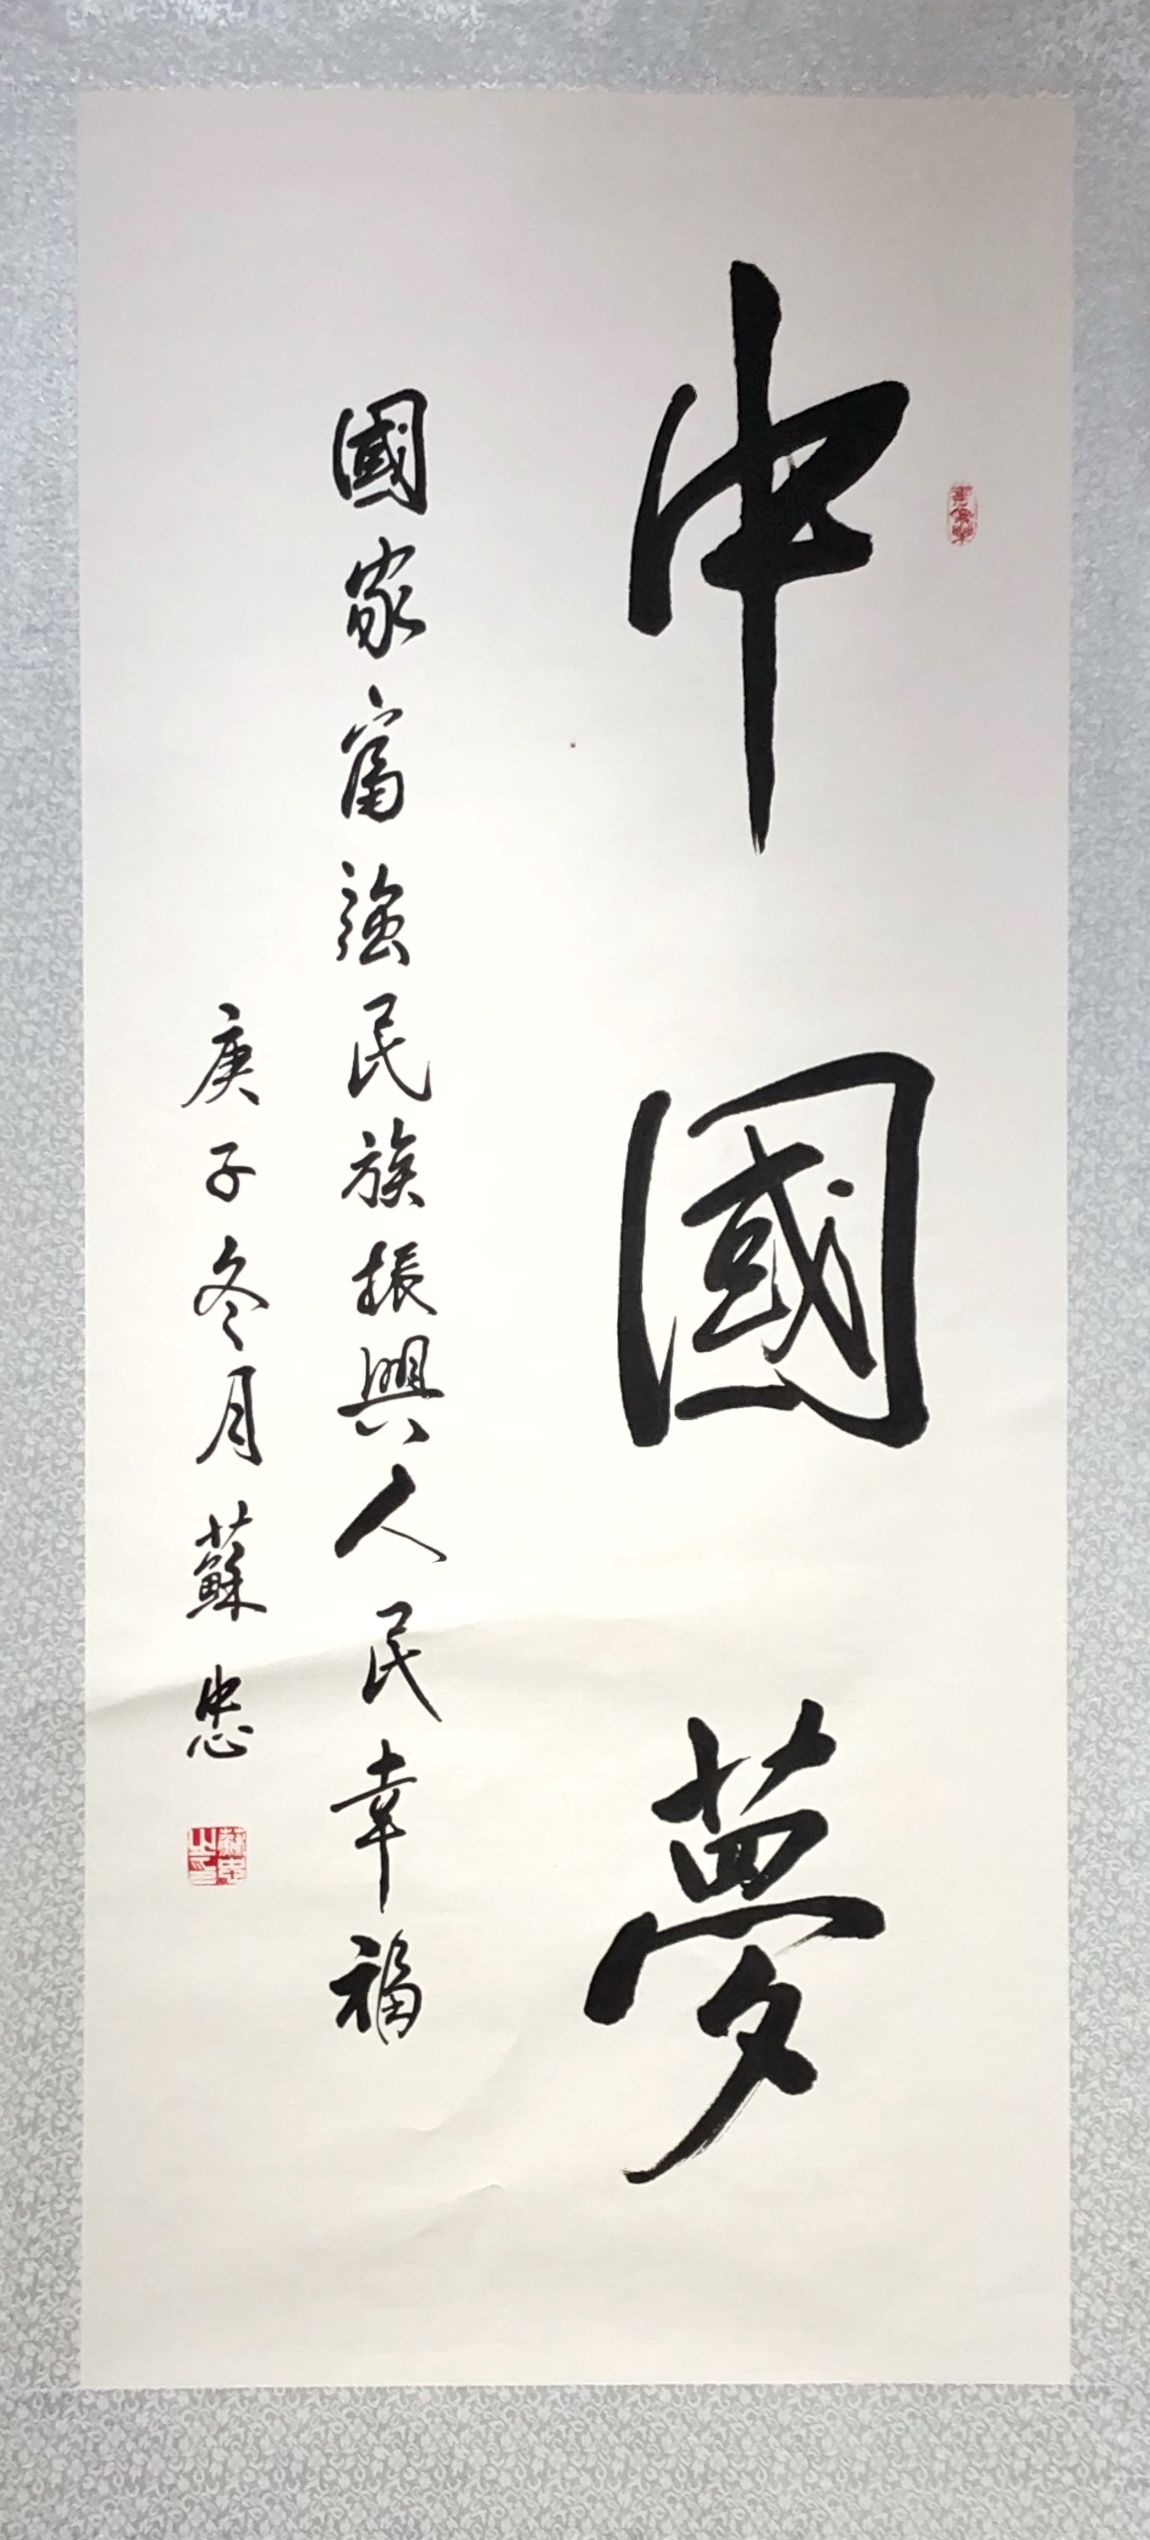 中國夢
國家富強民族振興人民幸福
庚子冬月蘇忠